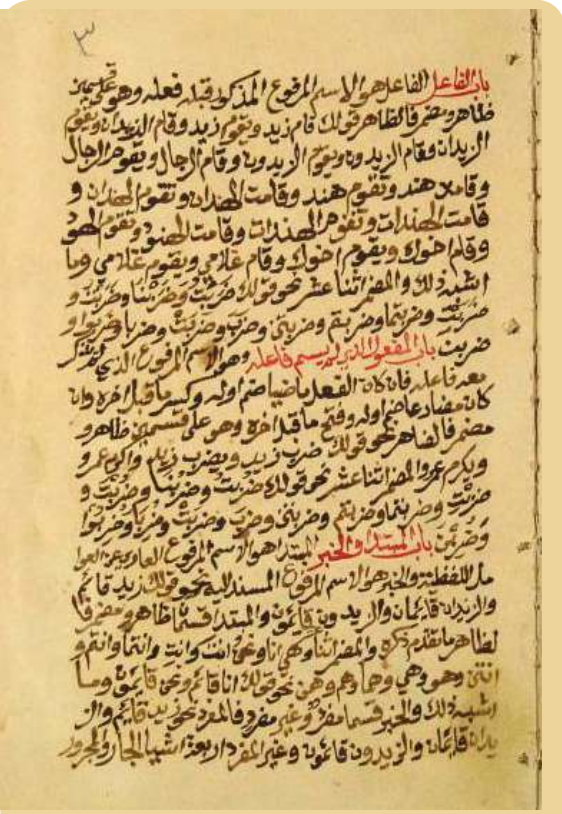 ٣
باب الفاعل الفاعل هو الاسم المرفوع المذكور قبله فعله وهو على قسمين
ظاهر ومضمر فالظاهر نحو قولك قام زيد ويقوم زيد وقام الزيدان ويقوم
الزيدان وقام الزيدون ويقوم الزيدون وقام الرجال ويقوم الرجال
وقامت هند وتقوم هند وقامت الهندان وتقوم الهندان و
قامت الهندات وتقوم الهندات وقامت الهنود وتقوم الهنود
وقام اخوك ويقوم اخوك وقام غلامي ويقوم غلامي وما
اشبه ذلك والمضمر اثنا عشر نحو قولك ضربت وضربنا وضربت و
ضربت وضربتما وضربتم وضربتن وضرب وضربت وضربا وضربوا و
ضربن باب المفعول الذي لم يسم فاعله وهو الاسم المرفوع الذي لم يذكر
معه فاعله فان كان الفعل ماضيا ضم اوله وكسر ما قبل اخره وان
كان مضارعا ضم اوله وفتح ما قبل اخره وهو على قسمين ظاهر و
مضمر فالظاهر نحو قولك ضرب زيد ويضرب زيد واكرم عمرو
ويكرم عمرو والمضمر اثنا عشر نحو قولك ضربت وضربنا وضربت و
ضربت وضربتما وضربتم وضربتن وضرب وضربت وضربا وضربوا
وضربن باب المبتدا والخبر المبتدا هو الاسم المرفوع العاري عن العوا
مل اللفظية والخبر هو الاسم المرفوع المسند اليه نحو قولك زيد قائم
والزيدان قايمان والزيدون قائمون والمبتدا قسمان ظاهر ومضمر فا
لظاهر ما تقدم ذكره والمضمر اثنا وهي انا ونحن انت وانت وانتما وانتم و
انتن وهو وهي وهما وهم وهن نحو قولك انا قائم ونحن قايمون وما
اشبه ذلك والخبر قسمان مفرد وغير مفرد فالمفرد نحو زيد قايم والز
يدان قايمان والزيدون قائمون وغير المفرد اربعة اشيا الجار والمجرور